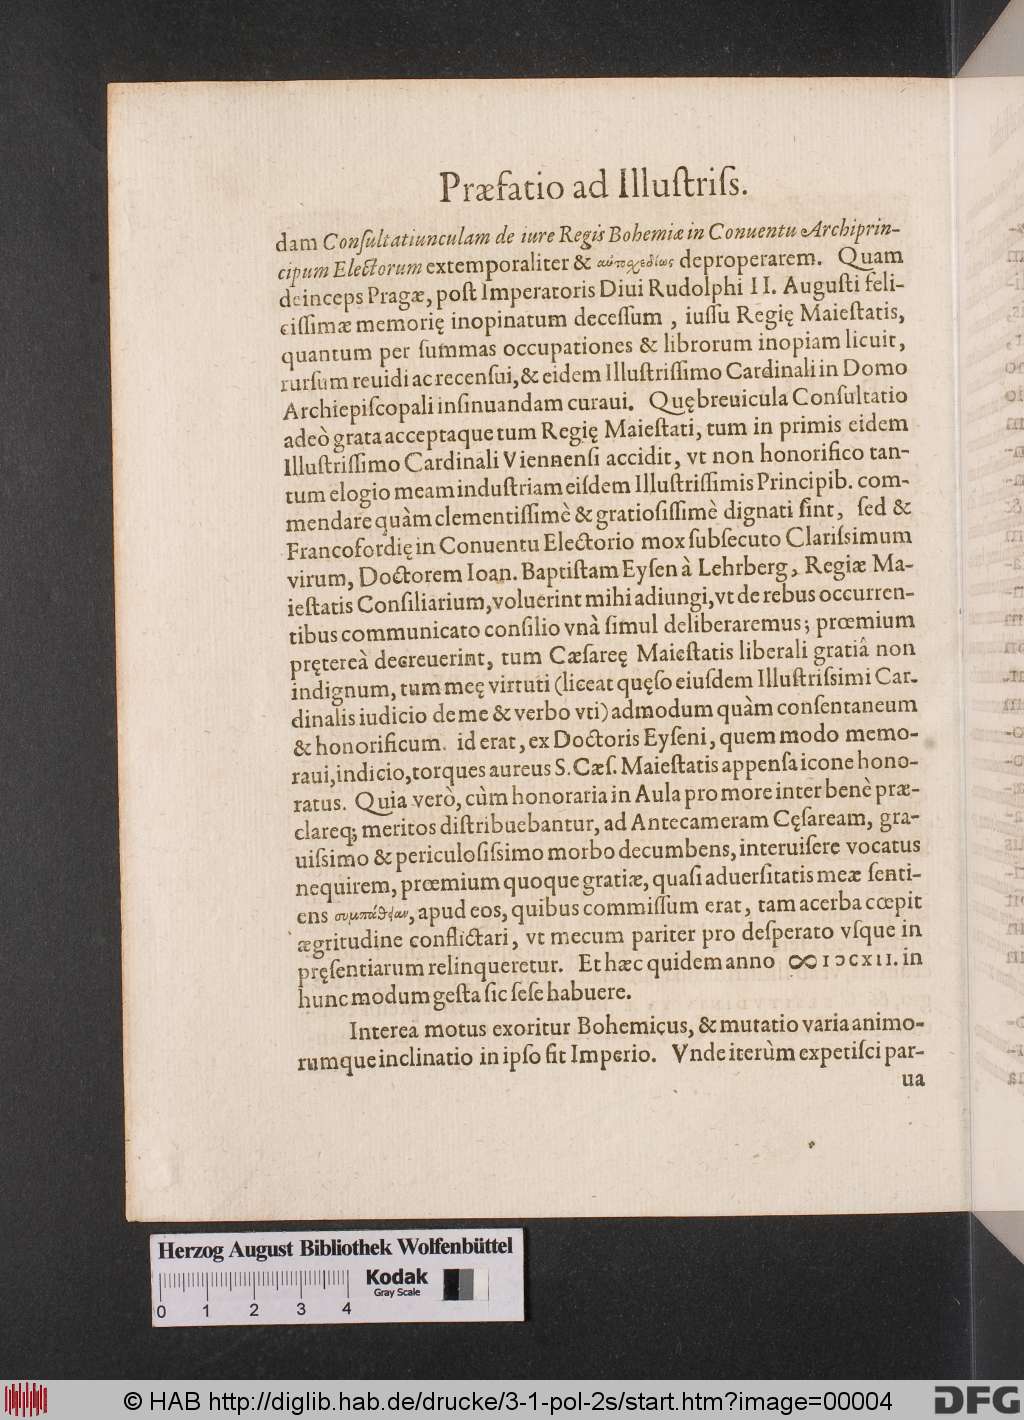 Præfatio ad Illuſtriſs.
dam Conſultatiunculam de iure Regis Bohemiæ in Conuentu Archiprin-
cipum Electorum extemporaliter & deproperarem. Quam
deinceps Pragæ, poſt Imperatoris Diui Rudolphi II. Auguſti feli-
ciſſimæ memorię inopinatum deceſſum, iuſſu Regię Maieſtatis,
quantum per ſummas occupationes & librorum inopiam licuit,
rurſum reuidi ac recenſui, & eidem Illuſtriſſimo Cardinali in Domo
Archiepiſcopali inſinuandam curaui. Quę breuicula Conſultatio
adeò grata acceptaque tum Regię Maieſtati, tum in primis eidem
Illuſtriſſimo Cardinali Viennenſi accidit, vt non honorifico tan-
tum elogio meam induſtriam eiſdem Illuſtriſſimis Principib. com-
mendare quàm clementiſſimè & gratioſiſſimè dignati ſint, ſed &
Francofordię in Conuentu Electorio mox ſubſecuto Clariſsimum
virum, Doctorem Ioan. Baptiſtam Eyſen à Lehrberg, Regiæ Ma-
ieſtatis Conſiliarium, voluerint mihi adiungi, vt de rebus occurren-
tibus communicato conſilio vnà ſimul deliberaremus; prœmium
pręterea̓ decreuerint, tum Cæſareę Maieſtatis liberali gratiâ non
indignum, tum meę virtuti (liceat quęſo eiuſdem Illuſtriſsimi Car-
dinalis iudicio de me & verbo vti) admodum quàm conſentaneum
& honorificum. id erat, ex Doctoris Eyſeni, quem modo memo-
raui, indicio, torques aureus S. Cæſ. Maieſtatis appenſa icone hono-
ratus. Quia verò, cùm honoraria in Aula pro more inter benè præ-
clareq; meritos diſtribuebantur, ad Antecameram Cęſaream, gra-
uiſsimo & periculoſiſsimo morbo decumbens, interuiſere vocatus
nequirem, prœmium quoque gratiæ, quaſi aduerſitatis meæ ſenti-
ens , apud eos, quibus commiſſum erat, tam acerba cœpit
ægritudine conflictari, vt mecum pariter pro deſperato vſque in
pręſentiarum relinqueretur. Et hæc quidem anno ∞ I Ɔ C X I I. in
hunc modum geſta ſic ſeſe habuere.
Interea motus exoritur Bohemicus, & mutatio varia animo-
rumque inclinatio in ipſo fit Imperio. Vnde iterùm expetiſci par-
ua
Herzog August Bibliothek Wolfenbüttel
Kodak
Gray Scale
0 1 2 3 4
© HAB http://diglib.hab.de/drucke/3-1-pol-2s/start.htm?image=00004
DFG